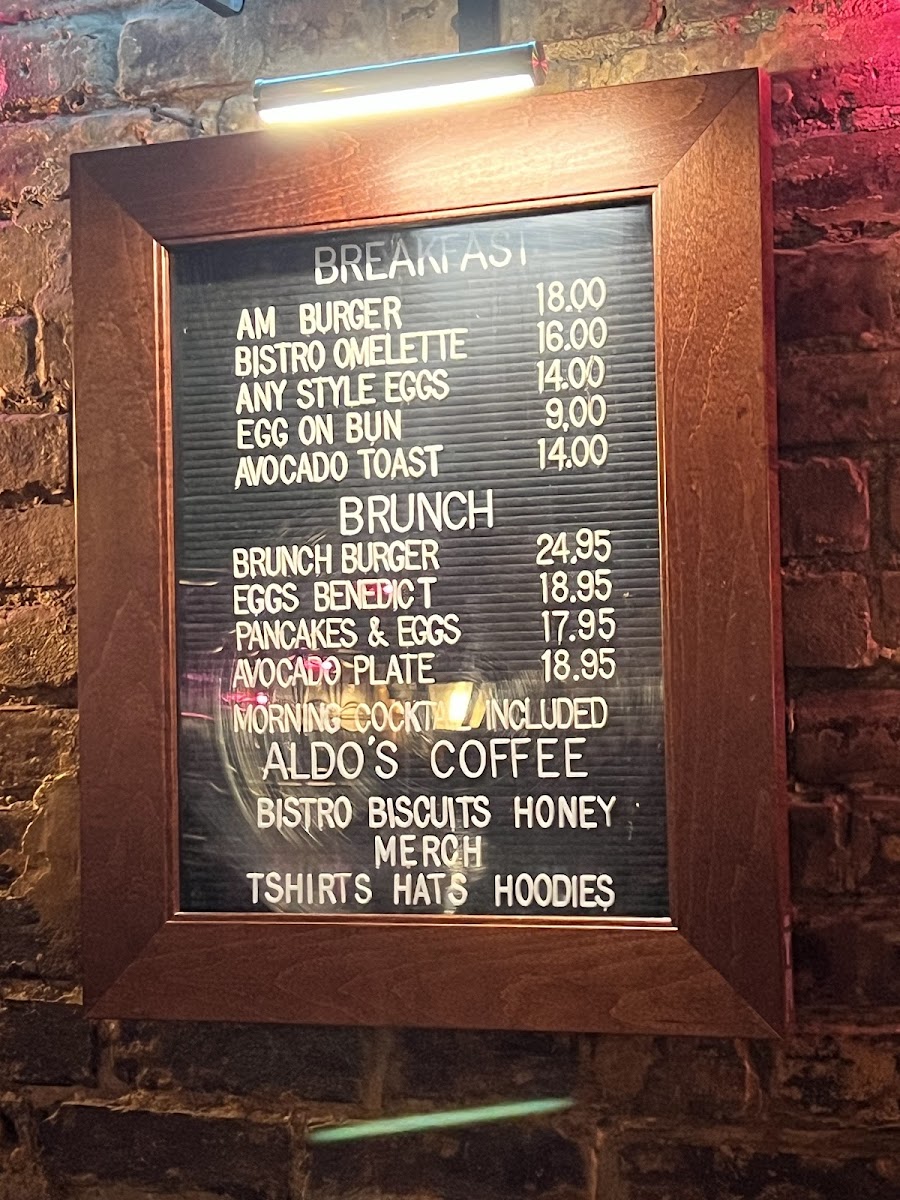 BREAKFAST
AM BURGER 18.00
BISTRO OMELETTE 16.00
ANY STYLE EGGS 14.00
EGG ON BUN 9,00
AVOCADO TOAST 14.00
BRUNCH
BRUNCH BURGER 24,95
EGGS BENEDICT 18.95
PANCAKES & EGGS 17.95
AVOCADO PLATE 18.95
MORNING COCKTAIL INCLUDED
ALDO'S COFFEE
BISTRO BISCUITS HONEY
MERCH
TSHIRTS HATS HOODIES